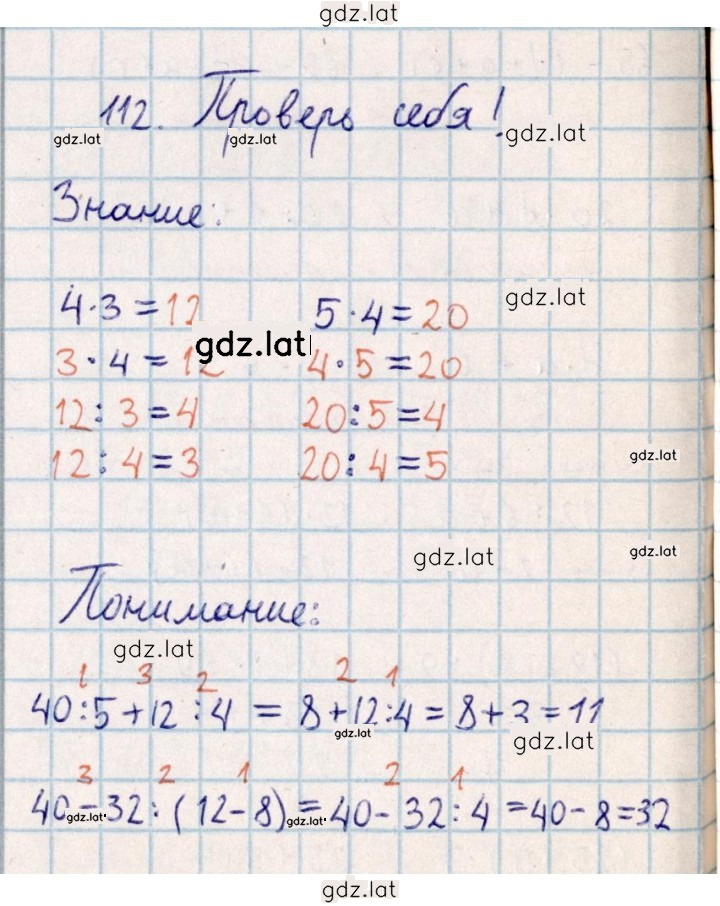 gdz.lat
112. Проверь себя!
gdz.lat gdz.lat gdz.lat
Знание:
gdz.lat
4·3=12 5·4=20
gdz.lat
3·4=12 4·5=20
12:3=4 20:5=4
12:4=3 20:4=5 gdz.lat
gdz.lat gdz.lat
Понимание:
gdz.lat
1 3 2 2 1
40:5+12:4=8+12:4=8+3=11
gdz.lat gdz.lat
3 2 1 2 1
40-32:(12-8)=40-32:4=40-8=32
gdz.lat gdz.lat
gdz.lat